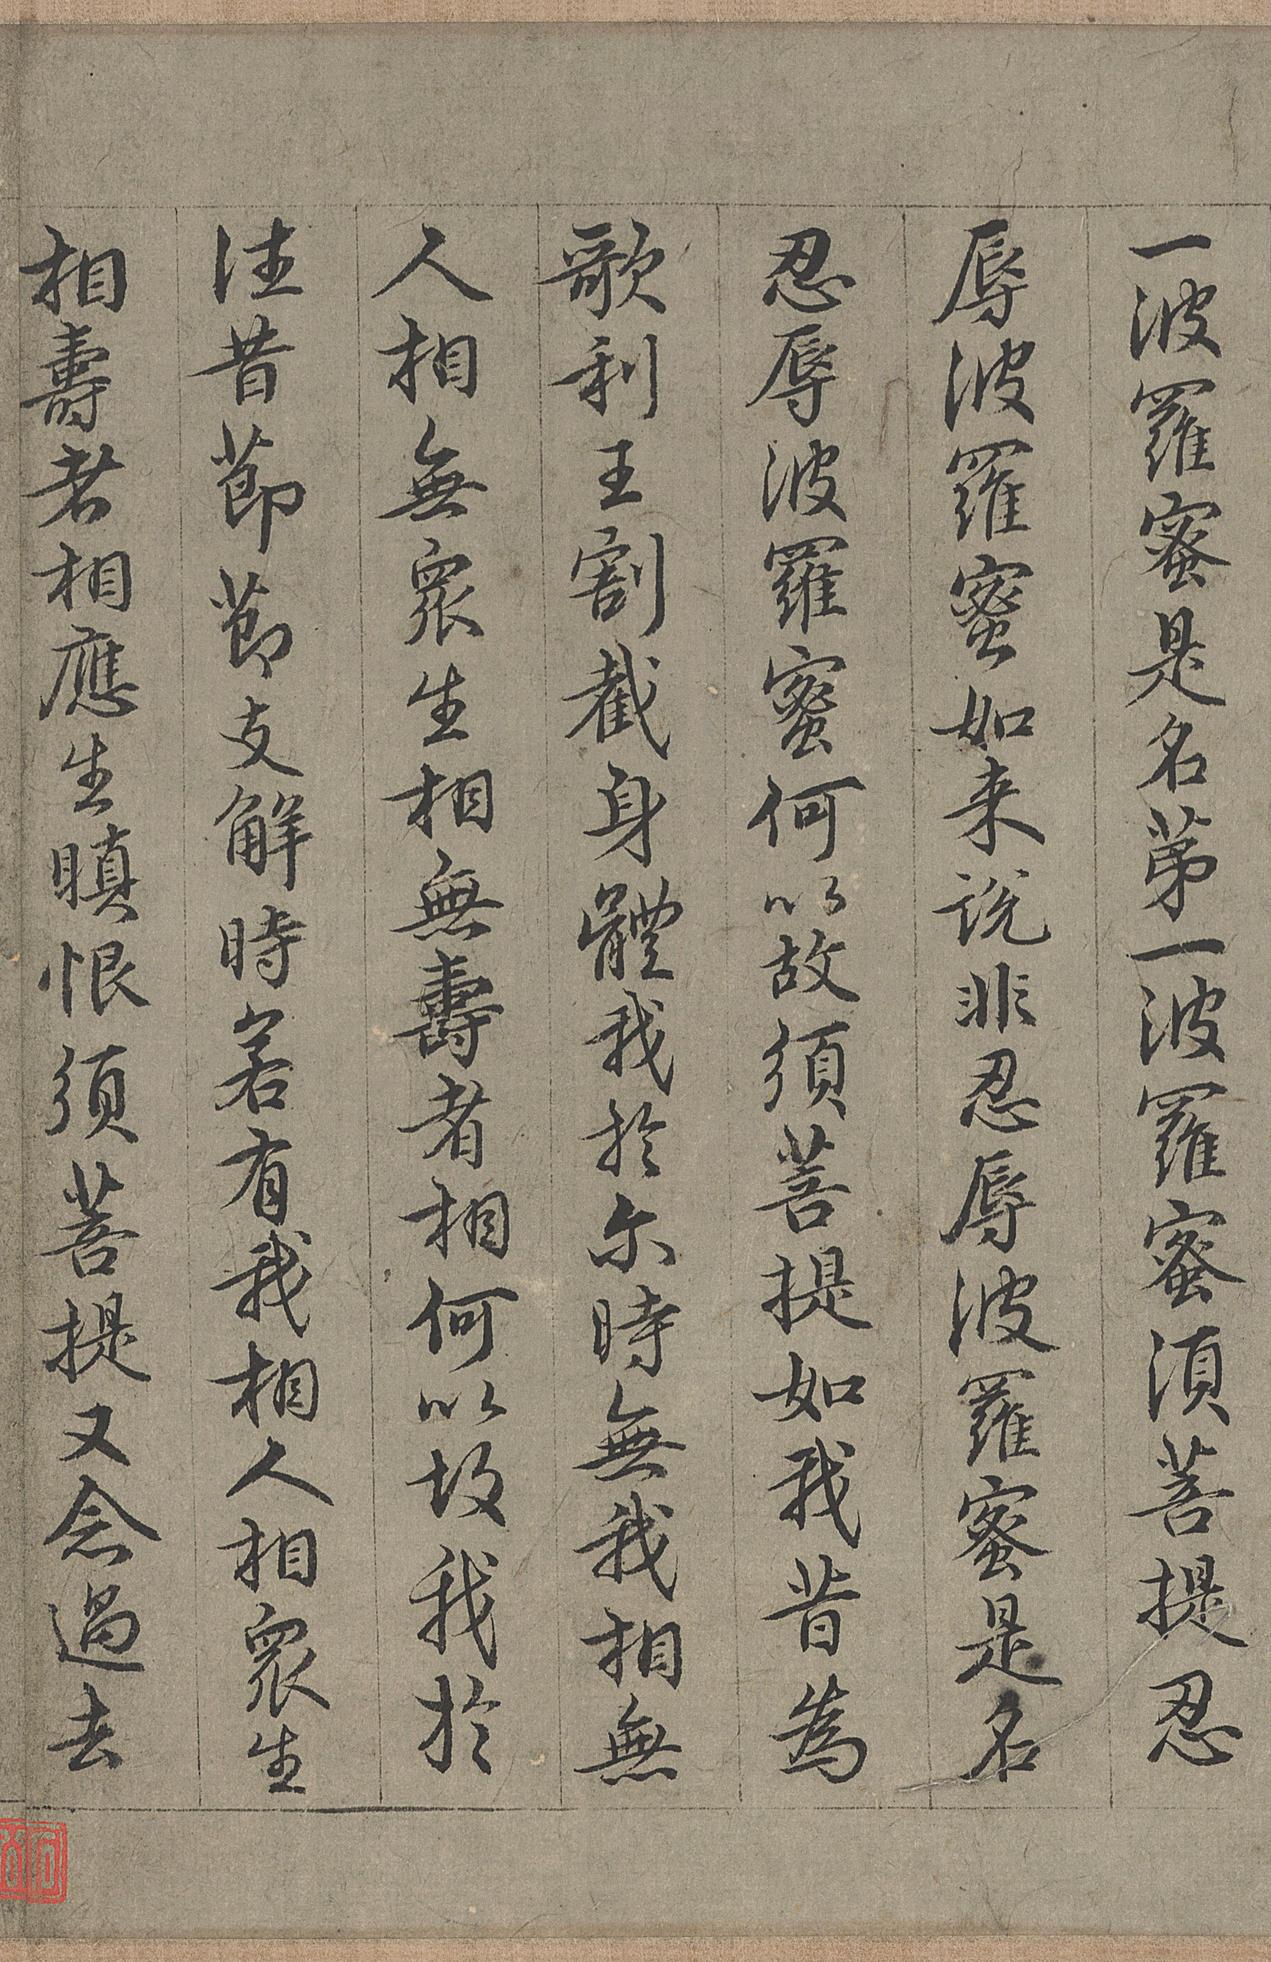 一波羅蜜是名苐一波羅蜜湏菩提忍
辱波羅蜜如来说非忍辱波羅蜜是名
忍辱波羅蜜何以故湏菩提如我昔為
歌利王割截身體我於尒時無我相無
人相無衆生相無壽者相何以故我於
往昔莭莭支解時若有我相人相衆生
相壽者相應生瞋恨湏菩提又念過去